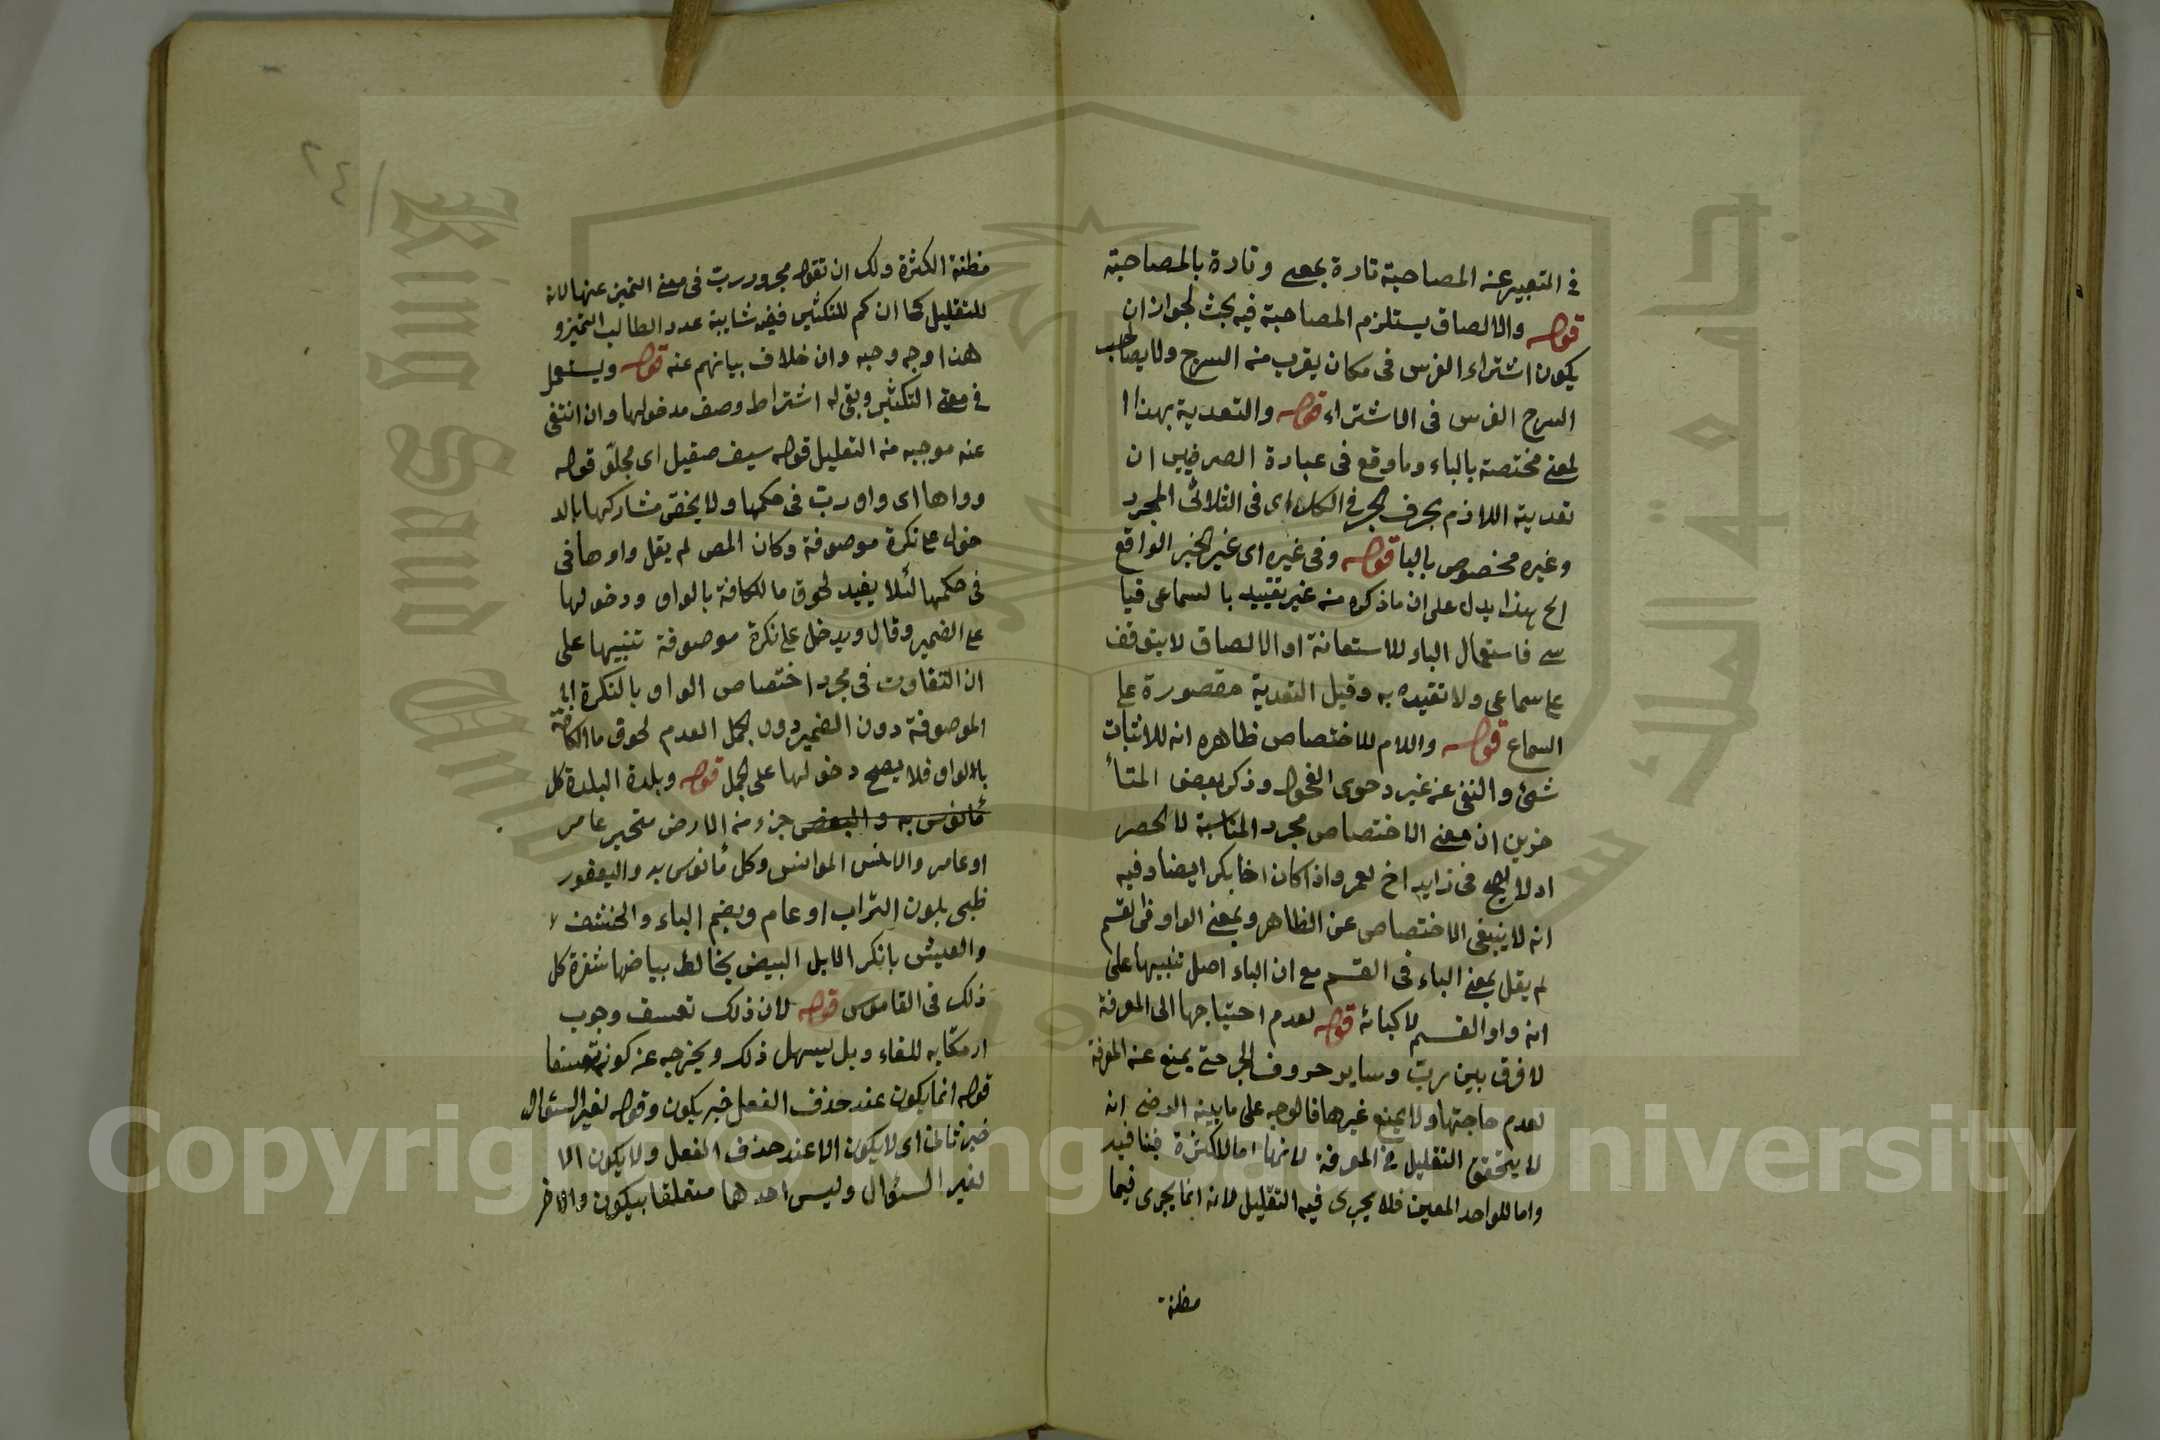 في التعبير عنه المصاحبة تارة بمعى وتارة بالمصاحبة
قوله والالصاق يستلزم المصاحبة فيه بحث لجواز ان
يكون اشتراء الفرس في مكان يقرب منه السرج ولا يصاحب
السرج الفرس في الاشتراء قوله والتعدية بهذا ا
لمعنى مختصة بالباء وما وقع في عبارة الصرفيين ان
تعدية اللازم بحرف الجر في الكل اي في الثلاثى المجرد
وغيره مخصوص بالبا قوله وفي غيره اى غير الخبر الواقع
الخ بهذا يدل على ان ما ذكره منه غير تقييد بالسماعى قيا
سى فاستعمال الباء للاستعانة او الالصاق لا يتوقف
على سماعى ولا تقيده به وقيل التعدية مقصورة على
السماع قوله واللام للاختصاص ظاهره انه للاثبات
شئ والنفى عنه غير دعوى الفحول وذكر بعض المتأ
خرين ان معنى الاختصاص مجرد المناسبة لا الحصر
اذ لا يصح في زايد اخ لعمرو اذا كان اخا بكر ايضا وفيه
انه لا ينبغى الاختصاص عن الظاهر وبمعنى الواو في القسم
لم يقل بمعنى الباء في القسم مع ان الباء اصل تنبيها على
انه واو القسم لا كبائه قوله لعدم احتياجها الى المعرفة
لا فرق بين رب وساير حروف الجر حتى يمنع عنه المعرفة
لعدم حاجتها ولا يمنع غيرها فالوجه على ما بينه الرضى انه
لا يتحقق التقليل في المعرفة لانها اما للكثرة فينافيه
واما للواحد المعين فلا يجرى فيه التقليل لانه انما يجرى فيما
مظنة
٢٤١
مظنة الكثرة ولك ان تقول مجرور رب في معنى التميز عنها لانه
للتقليل كما ان كم للتكثير ففيه شايبة عدد الطالب التميز و
هذا وجه وجيه وان خلاف بيانهم عنه قوله ويستعمل
في معنى التكثير وبقى له اشتراط وصف مدخولها وان انتفى
عنه موجبه منه التقليل قوله سيف صقيل اى مجلّو قوله
وواها اى واو رب في حكمها ولا يخفى مشاركها بالد
خول على نكرة موصوفة وكان المص لم يقل واوها في
في حكمها لئلا يفيد لحوق ما الكافة بالواو ودخولها
على الضمير وقال ويدخل على نكرة موصوفة تنبيها على
ان التفاوت في مجرد اختصاص الواو بالنكرة
الموصوفة دون الضمير دون الجمل لعدم لحوق ما الكافة
بالواو فلا يصح دخولها على الجمل قوله وبلدة البلدة كل
مأنوس به و البعض جزء منه الارض متحير عامر
او غامر والانس الموانس وكل مأنوس به واليعفور
ظبى بلون التراب او عام وبضم الباء والخشف
والعيش بانكر الابل البيض يخالط بياضها شقرة كل
ذلك في القاموس قوله لان ذلك تعسف وجوب
ارتكابه للفاء وبل ليسهل ذلك ويخرجه عن كونه تعسفا
قوله انما يكون عند حذف الفعل خبر يكون وقوله لغير السئوال
خبر ثالث اى لا يكون الا عند حذف الفعل ولا يكون الا
لغير السئوال وليس احدها متعلقا بيكون والاخر
جامعة الملك سعود
King Saud University
1957
Copyright © King Saud University